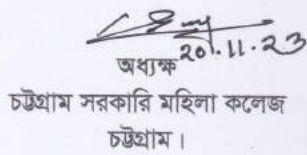 20.11.23
অধ্যক্ষ
চট্টগ্রাম সরকারি মহিলা কলেজ
চট্টগ্রাম।